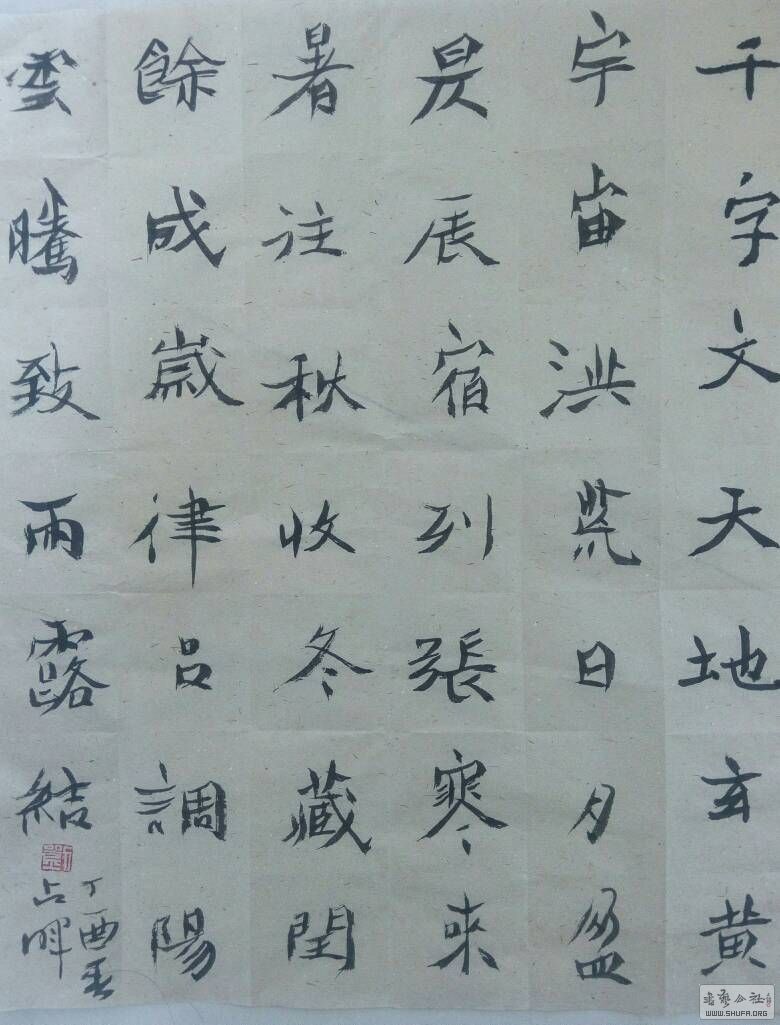 千字文天地玄黄
宇宙洪荒日月盈
昃辰宿列張寒来
暑往秋收冬藏閏
餘成歲律吕調陽
雲騰致雨露結
丁酉春
占暉
書藝公社
WWW.SHUFA.ORG